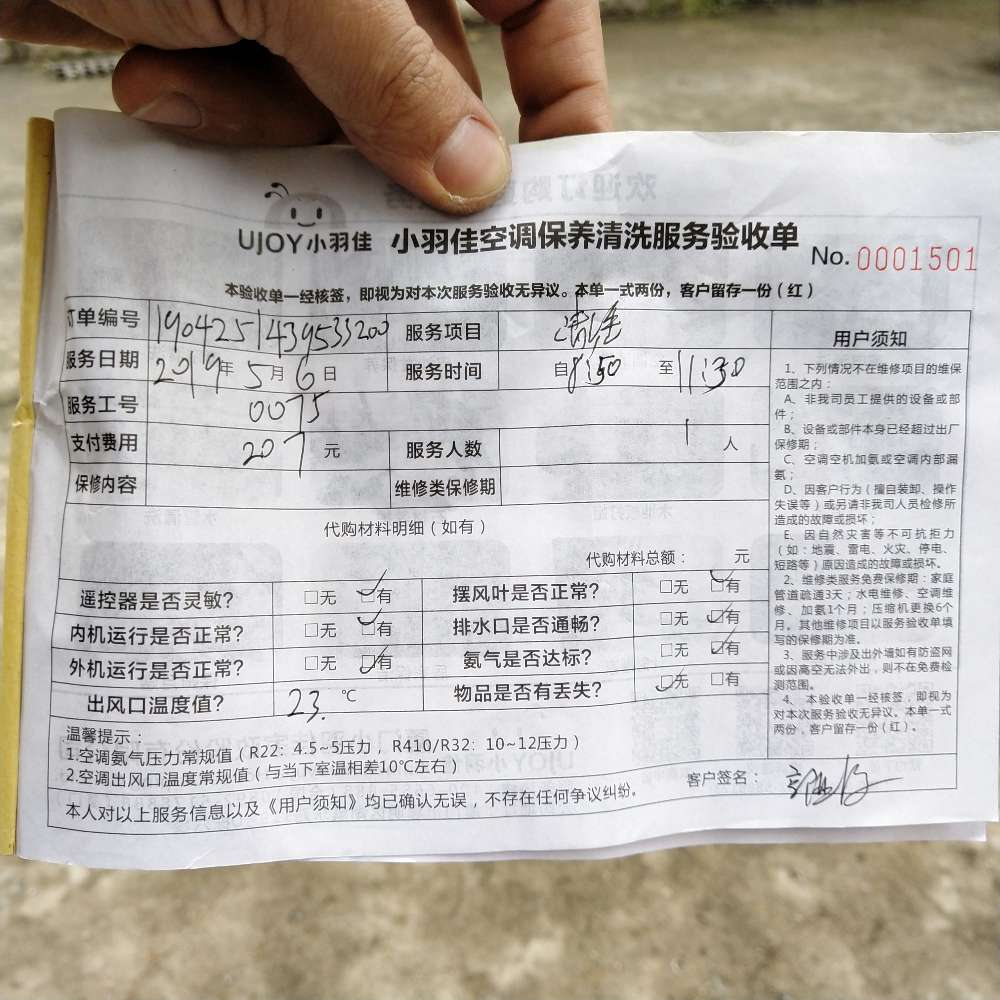 UJOY小羽佳 小羽佳空调保养清洗服务验收单 No.0001501
本验收单一经核签，即视为对本次服务验收无异议。本单一式两份，客户留存一份（红）
订单编号 1904251439533200 服务项目 清洗
服务日期 2019年5月6日 服务时间 自8:50至11:30
服务工号 0075
支付费用 207元 服务人数 1人
保修内容 维修类保修期
代购材料明细（如有）
代购材料总额： 元
遥控器是否灵敏？ □无 ☑有 摆风叶是否正常？ □无 ☑有
内机运行是否正常？ □无 ☑有 排水口是否通畅？ □无 ☑有
外机运行是否正常？ □无 ☑有 氨气是否达标？ □无 ☑有
出风口温度值？ 23.℃ 物品是否有丢失？ ☑无 □有
温馨提示：
1.空调氨气压力常规值（R22：4.5~5压力，R410/R32：10~12压力）
2.空调出风口温度常规值（与当下室温相差10℃左右）
本人对以上服务信息以及《用户须知》均已确认无误，不存在任何争议纠纷。
客户签名：
用户须知
1、下列情况不在维修项目的维保
范围之内：
A、非我司员工提供的设备或部
件；
B、设备或部件本身已经超过出厂
保修期；
C、空调空机加氨或空调内部漏
氨；
D、因客户行为（擅自装卸、操作
失误等）或另请非我司人员检修所
造成的故障或损坏；
E、因自然灾害等不可抗拒力
（如：地震、雷电、火灾、停电、
短路等）原因造成的故障或损坏。
2、维修类服务免费保修期：家庭
管道疏通3天；水电维修、空调维
修、加氨1个月；压缩机更换6个
月。其他维修项目以服务验收单填
写的保修期为准。
3、服务中涉及出外墙如有防盗网
或因高空无法外出，则不在免费检
测范围。
4、本验收单一经核签，即视为
对本次服务验收无异议。本单一式
两份，客户留存一份（红）。